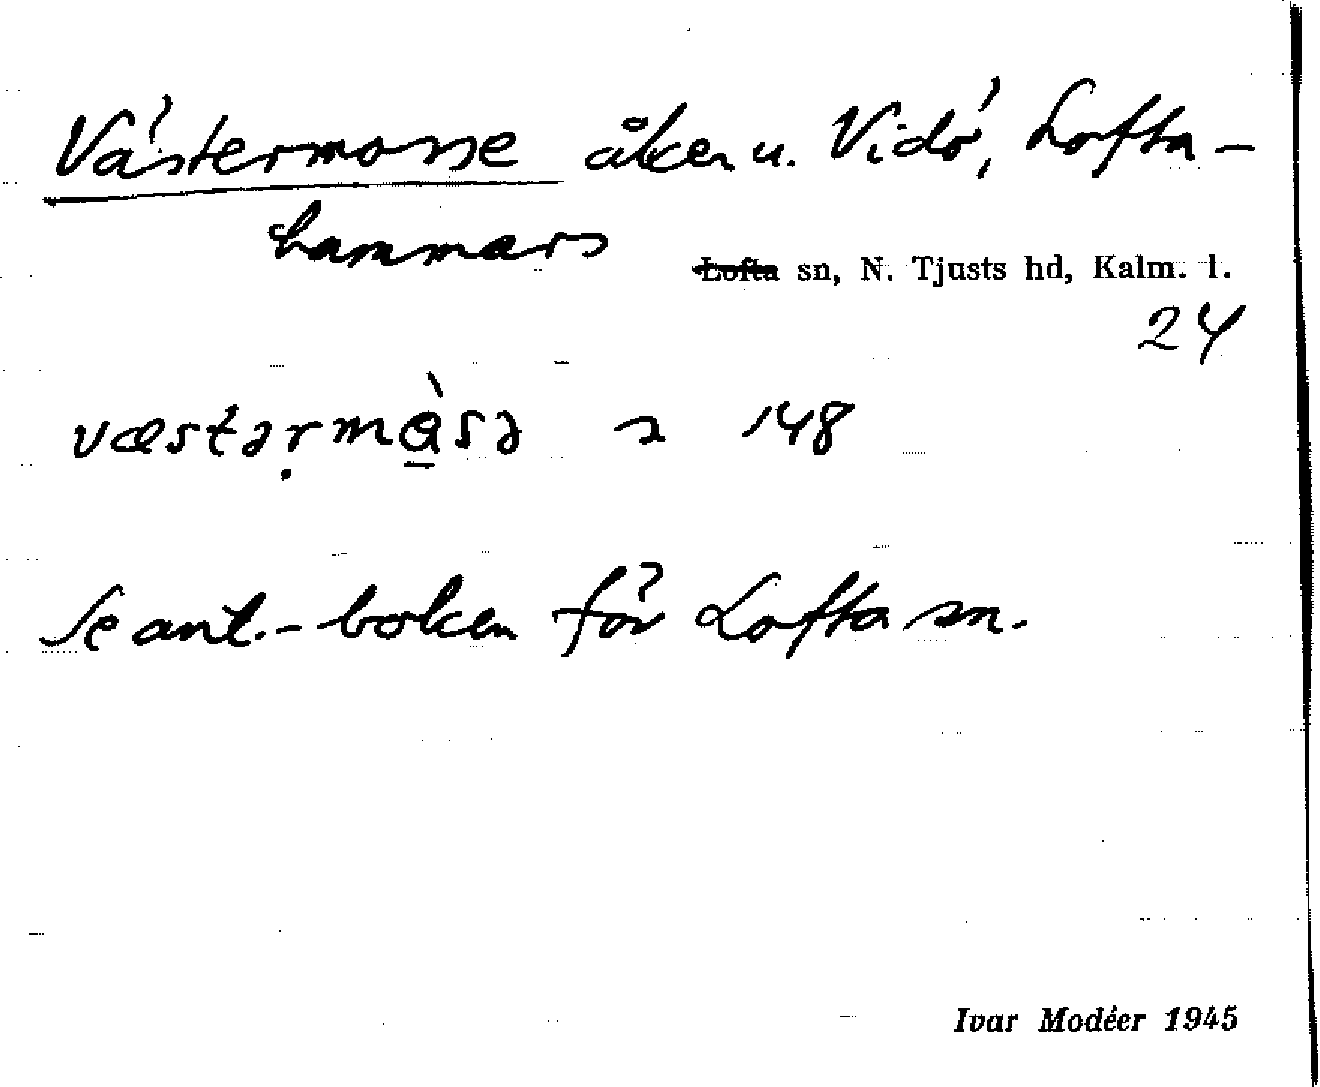 Västermosse åker u. Vidö, Lofta-
hammars
Lofta sn, N. Tjusts hd, Kalm. l.
24
148
Se ant.-boken för Lofta sn.
Ivar Modéer 1945